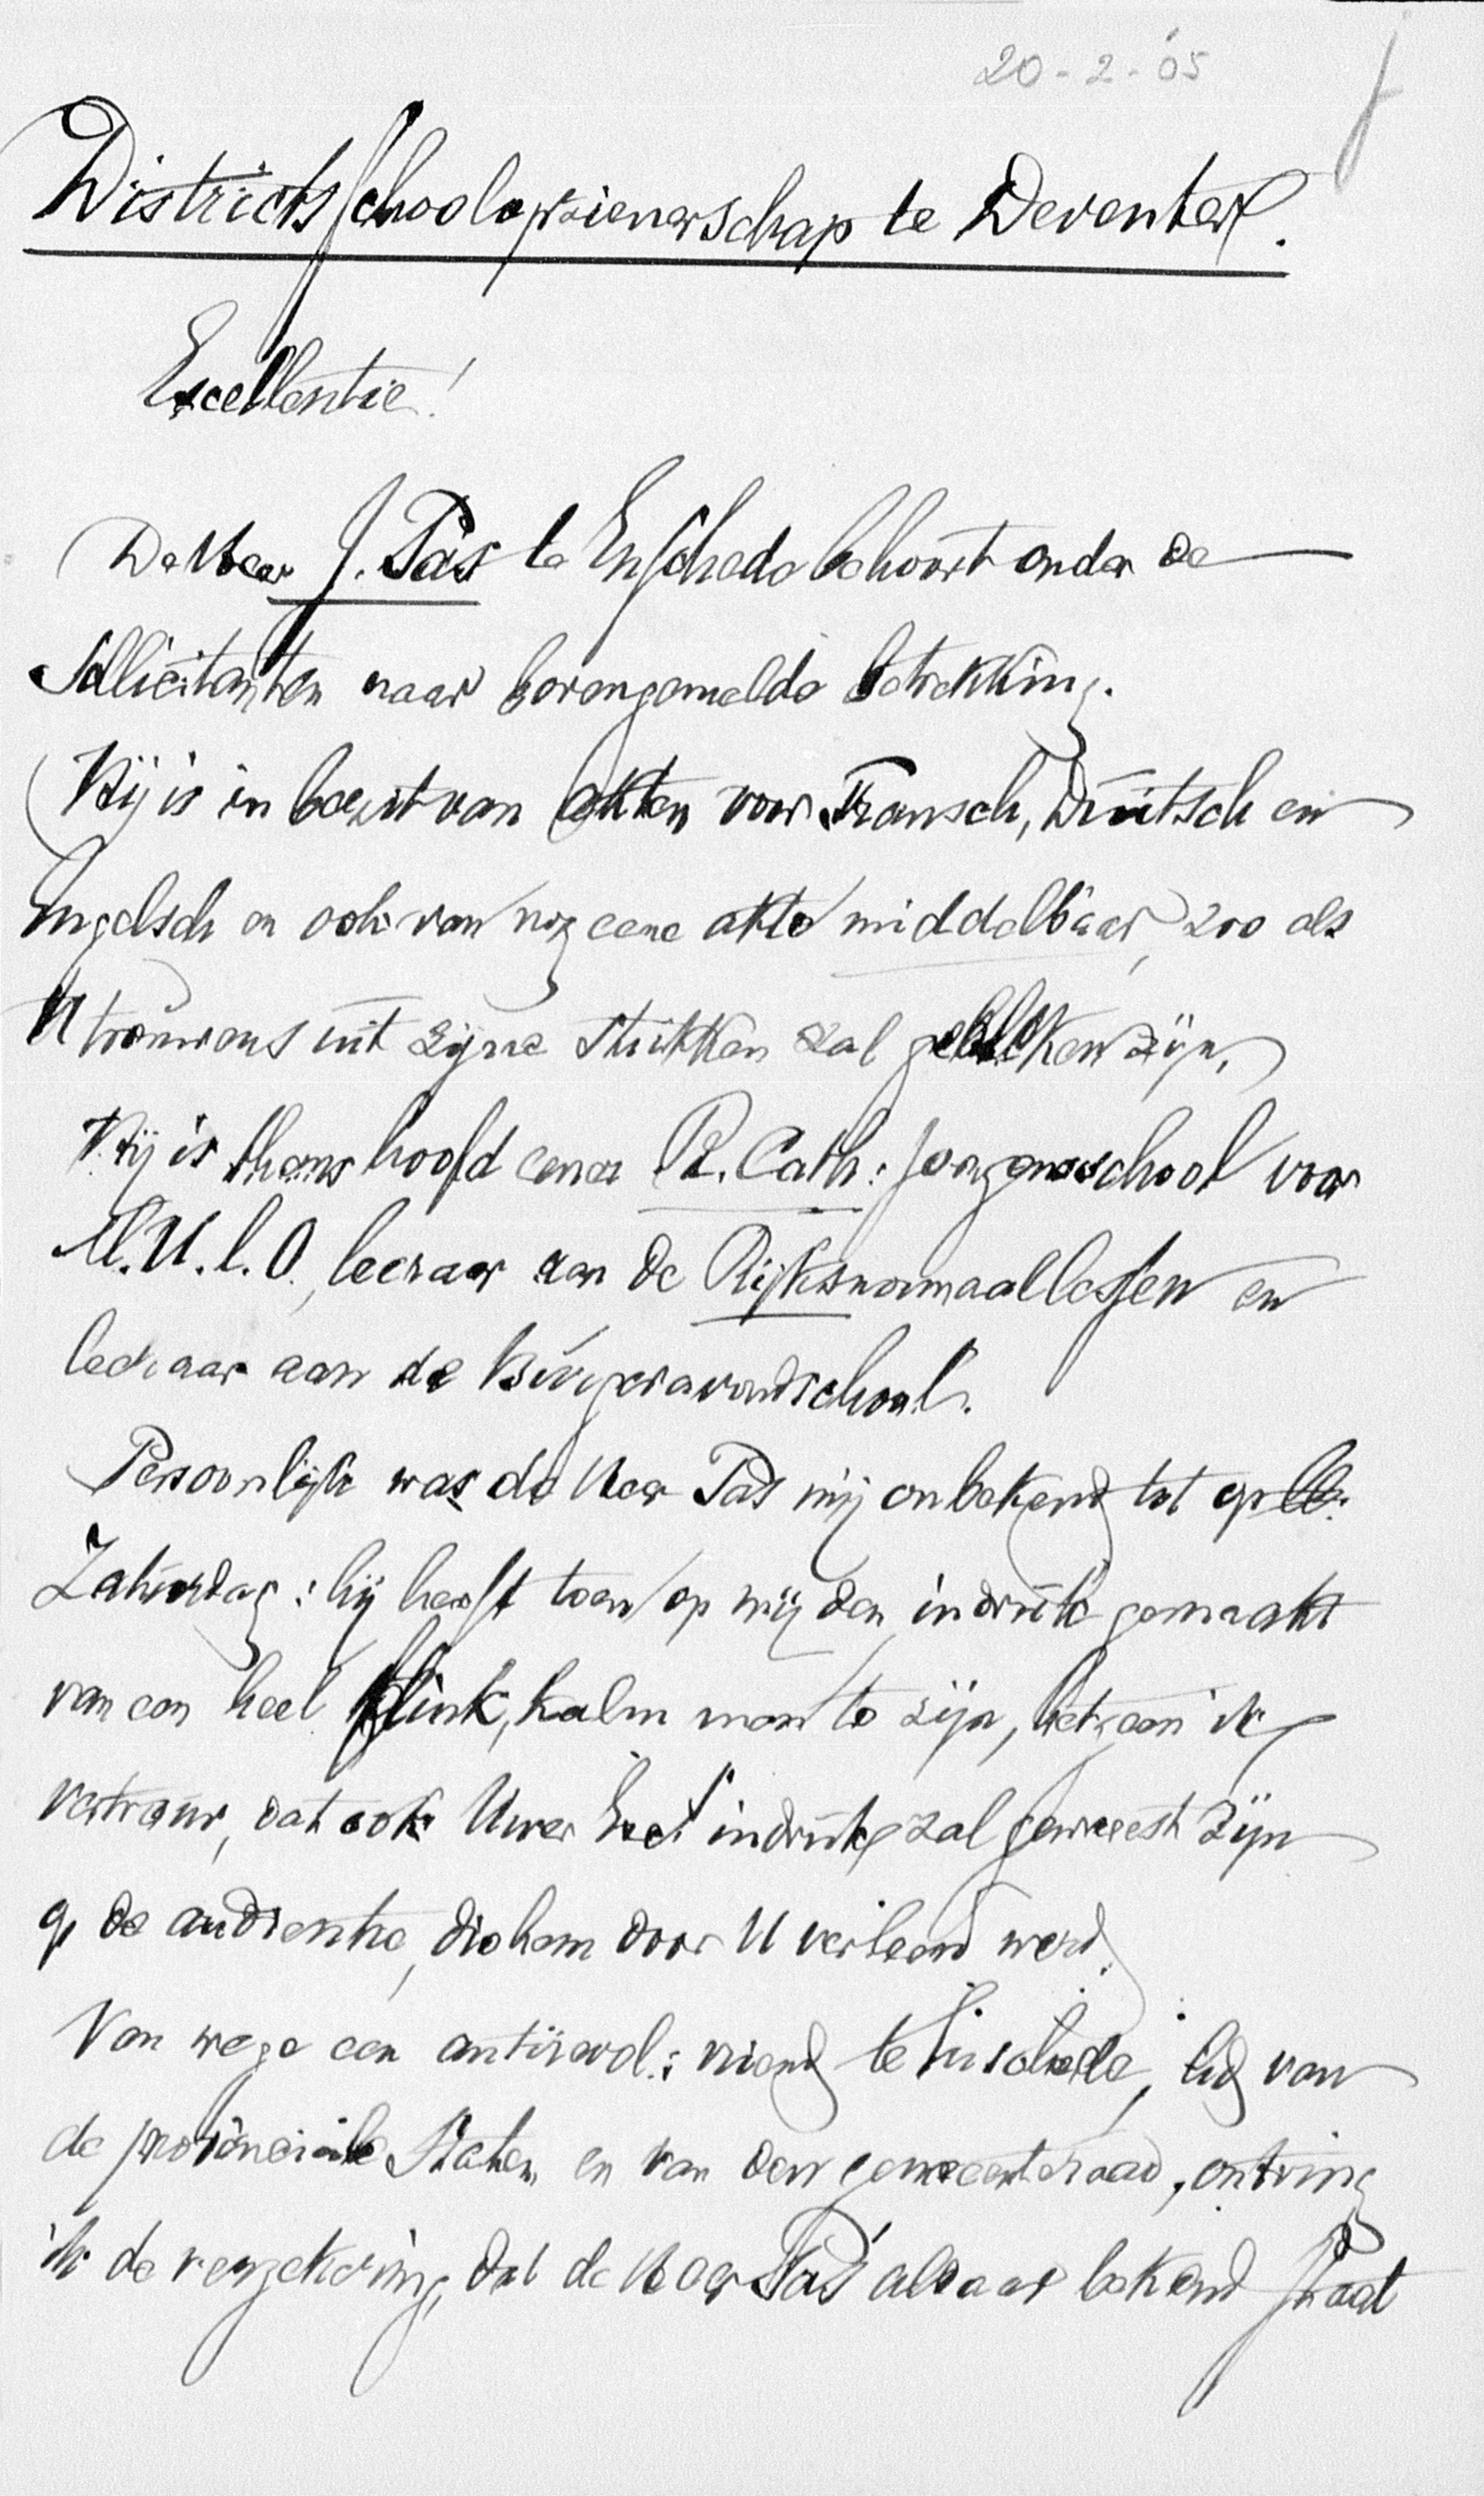 20-2-'05
Districtsschoolopzienerschap te Deventer.
Excellentie!
De Heer J. Pas te Enschede behoort onder de
sollicitanten naar bovengemelde betrekking.
Hij is in bezit van akten voor Fransch, Duitsch en
Engelsch en ook van nog eene akte middelbaar, zoo als
U trouwens uit zijne stukken zal gebleken zijn.
Hij is thans hoofd eener R. Cath: jongensschool voor
M.U.L.O., leeraar aan de Rijksnormaallessen en
leeraar aan de Burgeravondschool.
Persoonlijk was de Heer Pas mij onbekend tot op ll.
Zaturdag: hij heeft toen op mij den indruk gemaakt
van een heel flink, kalm man te zijn, hetgeen ik
vertrouw, dat ook Uwer Exc! indruk zal geweest zijn
op de audientie, die hem door U verleend werd.
Van wege een antirevol: vriend te Enschede, lid van
de provinciale Staten en van den gemeenteraad, ontving
ik de verzekering, dat de Heer Pas aldaar bekend staat